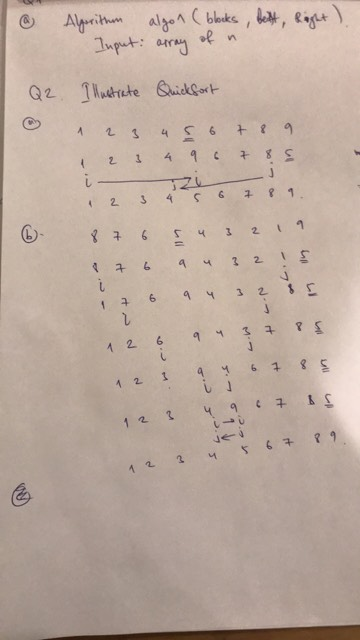 (a) Algorithm algo1 (blocks, left, Right)
Input: array of n
Q2. Illustrate Quicksort
(a)
1 2 3 4 5 6 7 8 9
1 2 3 4 9 6 7 8 5
i j i j
1 2 3 4 5 6 7 8 9
(b) 8 7 6 5 4 3 2 1 9
8 7 6 9 4 3 2 1 5
i j
1 7 6 9 4 3 2 8 5
i j
1 2 6 9 4 3 7 8 5
i j
1 2 3 9 4 6 7 8 5
i j
1 2 3 4 9 6 7 8 5
i i
j j
1 2 3 4 5 6 7 8 9